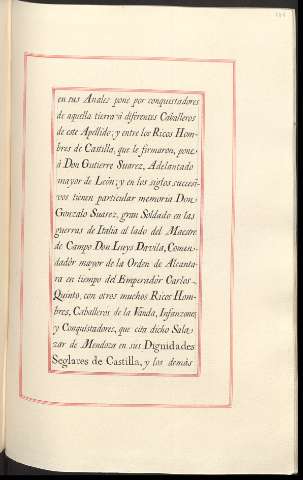 en sus Anales pone por conquistadores
de aquella tierra á diferentes Caballeros
de este Apellido; y entre los Ricos Hom-
bres de Castilla, que le firmaron, pone
á Don Gutierre Suarez, Adelantado
mayor de León; y en los siglos succesi-
vos tienen particular memoria Don
Gonzalo Suarez, gran Soldado en las
guerras de Italia al lado del Maestre
de Campo Don Luys Davila, Comen-
dadór mayor de la Orden de Alcanta-
ra en tiempo del Emperadór Carlos
Quinto, con otros muchos Ricos Hom-
bres, Caballeros de la Vanda, Infanzones,
y Conquistadores, que cita dicho Sala-
zar de Mendoza en sus Dignidades
Seglares de Castilla, y los demás